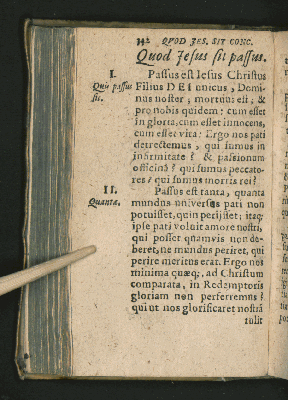 142 QVOD JES. SIT CONC.
Quod Jesus sit passus.
I.
Quis passus
sit.
Passus est Iesus Christus
Filius DEI unicus, Domi-
nus noster, mortuus est, &
pro nobis quidem: cum esset
in gloria, cum esset innocens,
cum esset vita: Ergo nos pati
detrectemus, qui sumus in
infirmitate? & passionum
officina? qui sumus peccato-
res? qui sumus mortis rei?
II.
Quanta.
Passus est tanta, quanta
mundus universus pati non
potuisset, quin perijsset: itaq;
ipse pati voluit amore nostri,
qui posset quamvis non de-
beret, ne mundus periret, qui
perire meritus erat. Ergo nos
minima quæq;, ad Christum
comparata, in Redemptoris
gloriam non perferremus?
qui ut nos glorificaret nostrâ
tulit